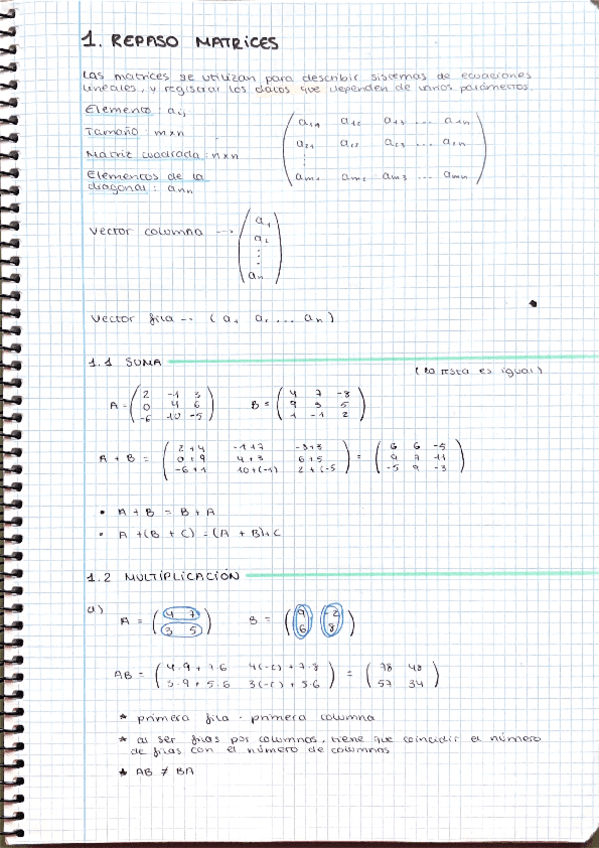 1. REPASO MATRICES
Las matrices se utilizan para describir sistemas de ecuaciones
lineales, y registrar los datos que dependen de varios parámetros.
Elemento : aij
Tamaño : m×n
Matriz cuadrada : n×n
Elementos de la
diagonal : ann
( a11 a12 a13 ... a1n )
( a21 a22 a23 ... a2n )
⋮
( am1 am2 am3 ... amn )
Vector columna --→ ( a1
a2
⋮
an )
Vector fila --→ ( a1 a2 ... an )
1.1 SUMA
(la resta es igual)
A = ( 2 -1 3 B = ( 4 7 -8
0 4 6 9 3 5
-6 10 -5 ) 1 -1 2 )
A + B = ( 2+4 -1+7 -3+3 ) = ( 6 6 -5
0+9 4+3 6+5 9 7 11
-6+1 10+(-1) 2+(-5 ) -5 9 -3 )
• A + B = B + A
• A +(B + C) = (A + B)+C
1.2 MULTIPLICACIÓN
a)
A = ( 4 7 B = ( 9 -2
3 5 ) 6 8 )
AB = ( 4·9 + 7·6 4(-2) + 7·8 ) = ( 78 48
3·9 + 5·6 3(-2) + 5·6 ) 57 34 )
* primera fila · primera columna
* al ser filas por columnas, tiene que coincidir el número
de filas con el número de columnas
* AB ≠ BA